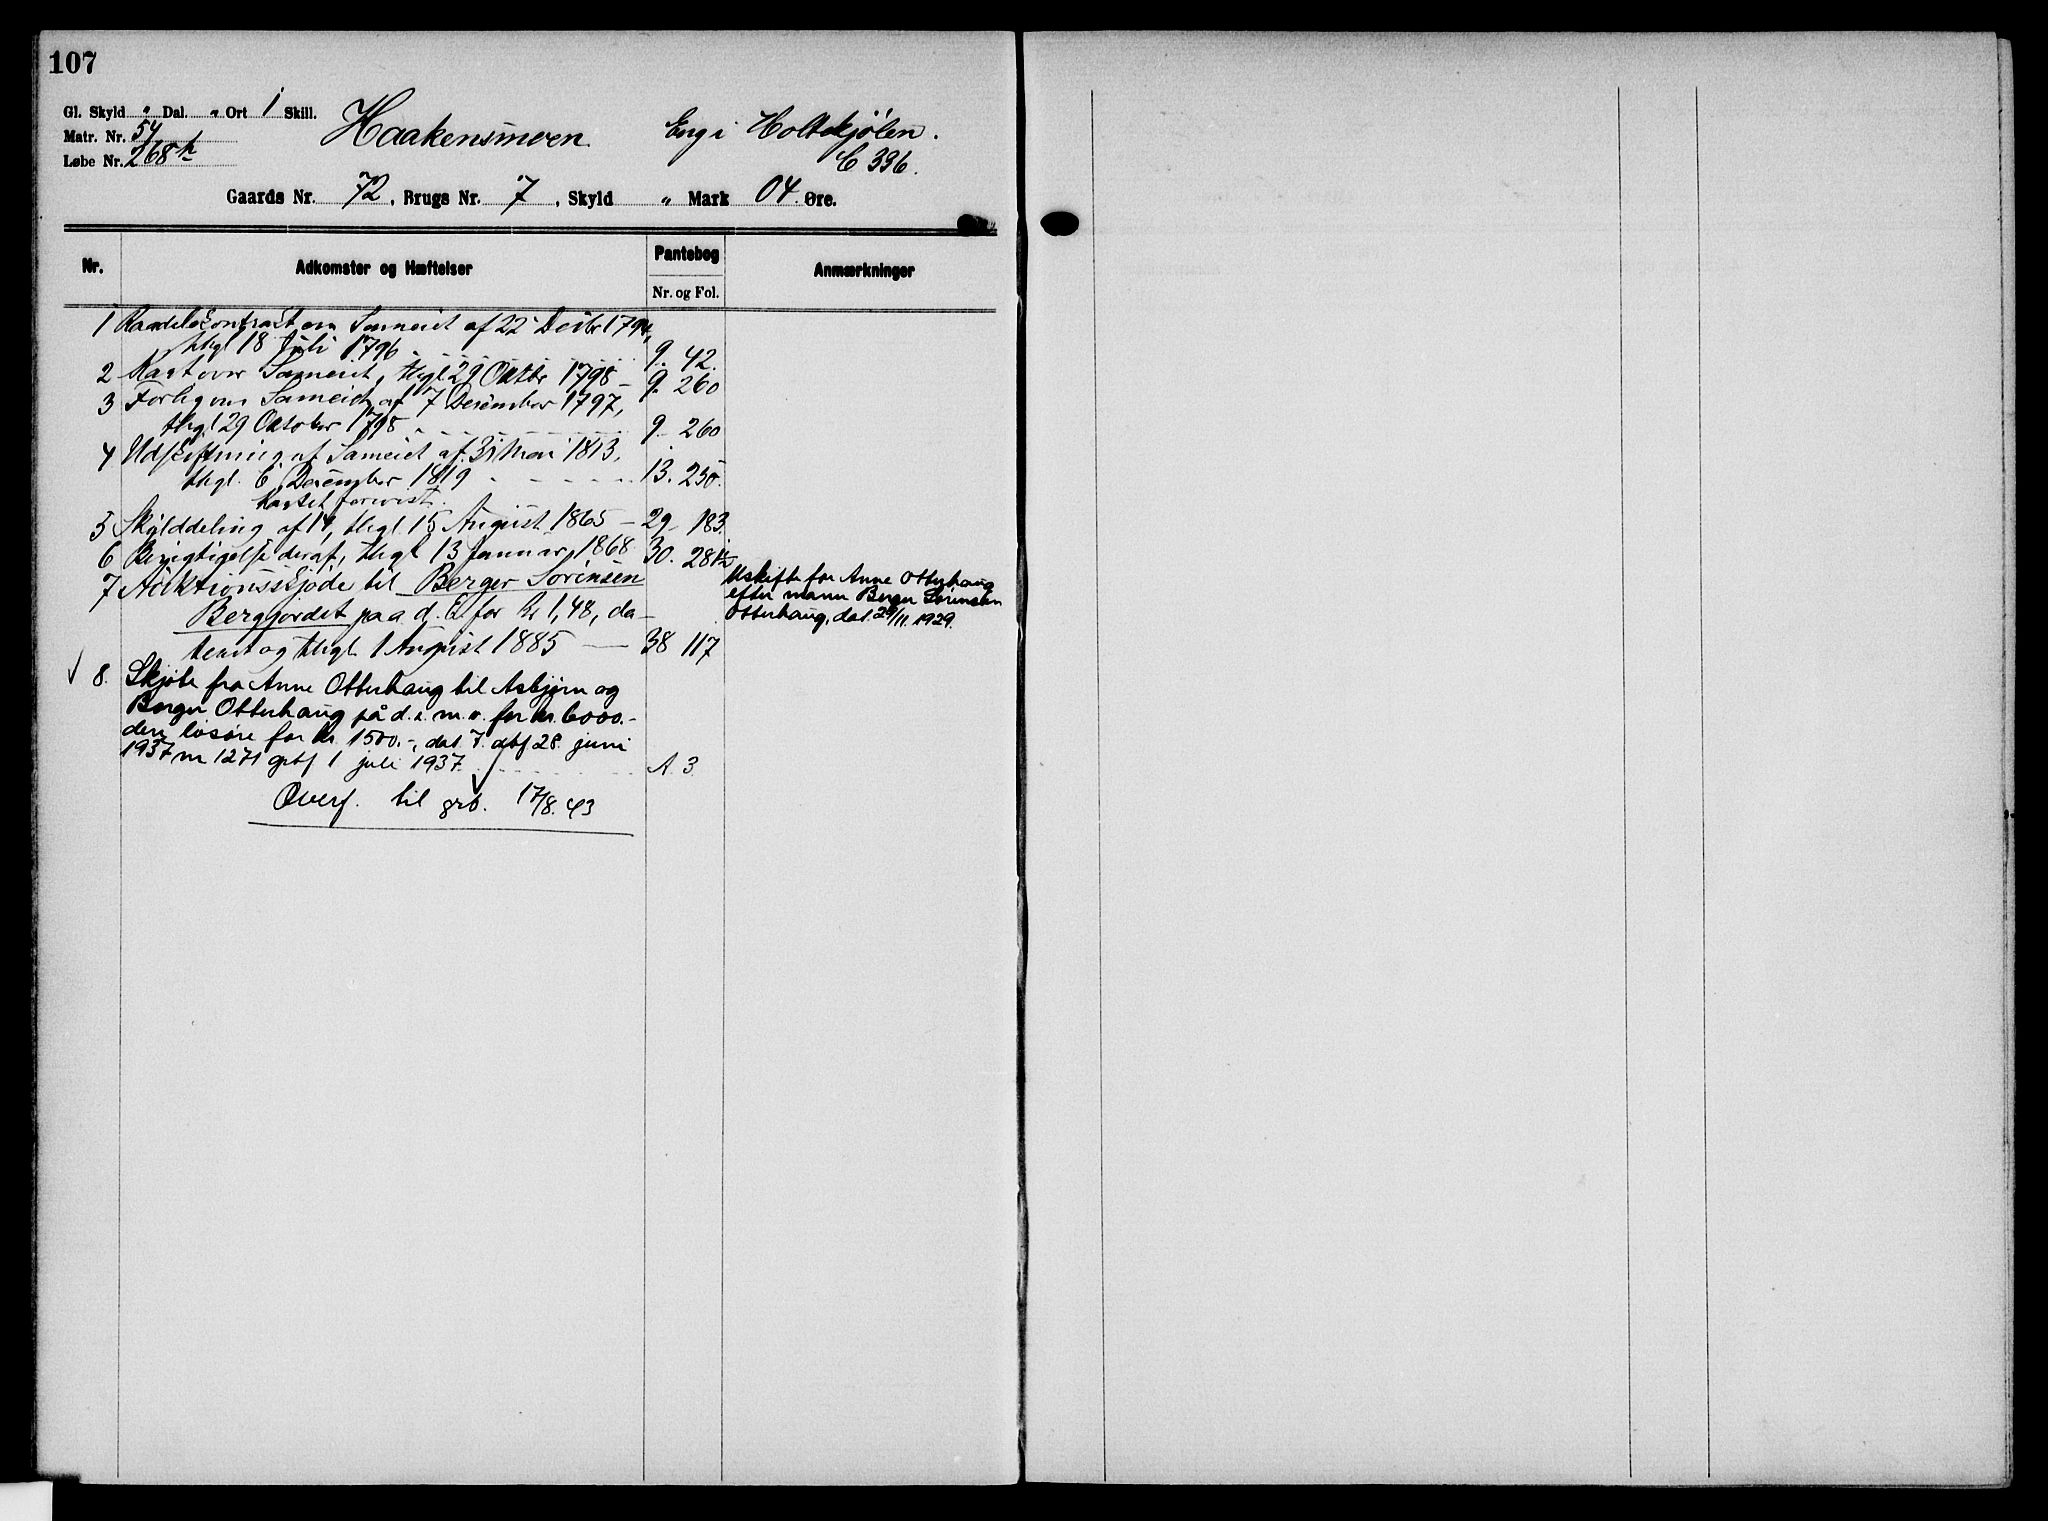 107
Gl. Skyld " Dal. " Ort 1 Skill.
Matr. Nr. 54
Løbe Nr. 268h
Haakensmoen Eng i Holtskjølen.
C 336.
Gaards Nr. 72, Brugs Nr. 7, Skyld " Mark 04 Øre.
Nr. Adkomster og Hæftelser Pantebog Anmærkninger
Nr. og Fol.
1 contract om Sameiet af 22 Decbr 1794,
thgl 18 Juli 1796 9. 42.
2 Kart over Sameiet, thgl 29 Oktbr 1798 - 9. 260
3 Forlig om Sameiet af 7 December 1797,
thgl 29 Oktober 1798 9. 260
4 Udskiftning af Sameiet af 31 Mai 1813,
thgl. 6 December 1819 13. 250.
Kartet forevist.
5 Skylddeling af 14, thgl 15 August 1865 - 29- 183
6 Berigtigelse deraf, thgl 13 Januar 1868 30. 281
7 Auktionsskjøde til Berger Sørensen
Bergjordet paa d. E for Kr 1,48, da-
teret og thgl 1 August 1885 — 38 117
Uskifte for Anne Otterhaug
efter mann Berger Sørensen
Otterhaug, dat. 29/11. 1929.
8. Skjøte fra Anne Otterhaug til Asbjørn og
Berger Otterhaug på d. e. m. v. for kr. 6000.-
løsøre for kr. 1500.-, dat. 7. dbf 28. juni
1937 nr 1271 grbf 1 juli 1937. A. 3
Overf. til grb. 17/8. 43